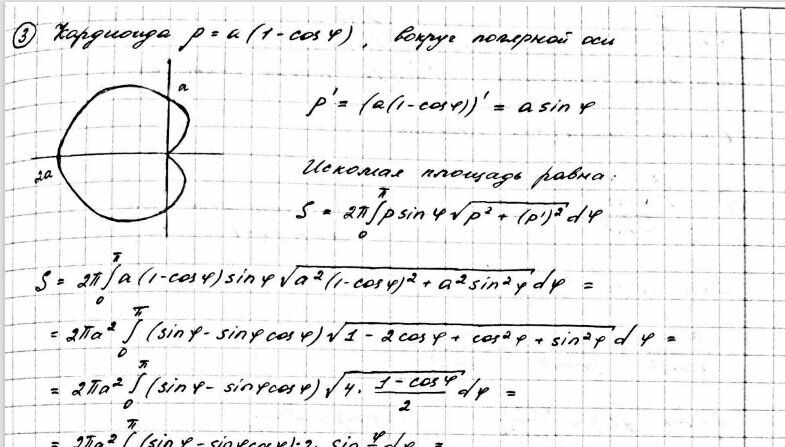 ③ Кардиоида ρ = a(1-cosφ), вокруг полярной оси
a
ρ' = (a(1-cosφ))' = a sinφ
2a
Искомая площадь равна:
S = 2π∫₀^π ρ sinφ √(ρ² + (ρ')²) dφ
S = 2π∫₀^π a(1-cosφ) sinφ √(a²(1-cosφ)² + a² sin²φ) dφ =
= 2πa² ∫₀^π (sinφ - sinφ cosφ) √(1 - 2cosφ + cos²φ + sin²φ) dφ =
= 2πa² ∫₀^π (sinφ - sinφcosφ) √(4 · (1-cosφ)/2) dφ =
= 2πa² ∫^π (sinφ - sinφcosφ)·2· sin φ/ dφ =